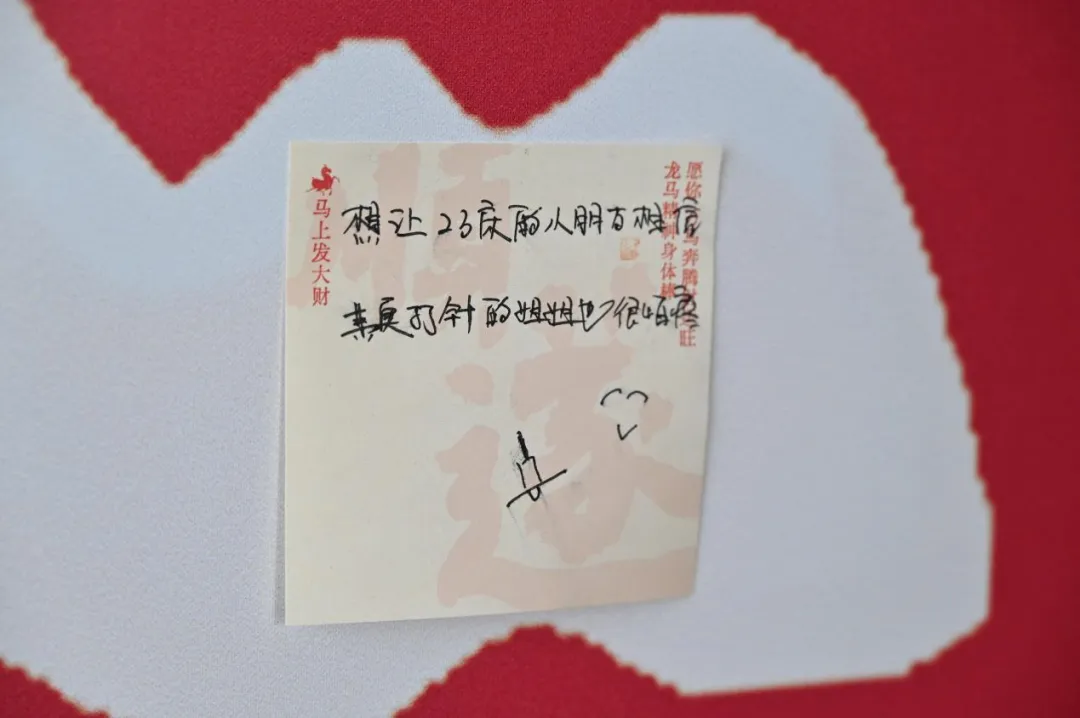 马上发大财
想让23床的小朋友相信
其实打针的姐姐也很怕疼
愿你 马奔腾 旺
龙马精神身体
顺遂